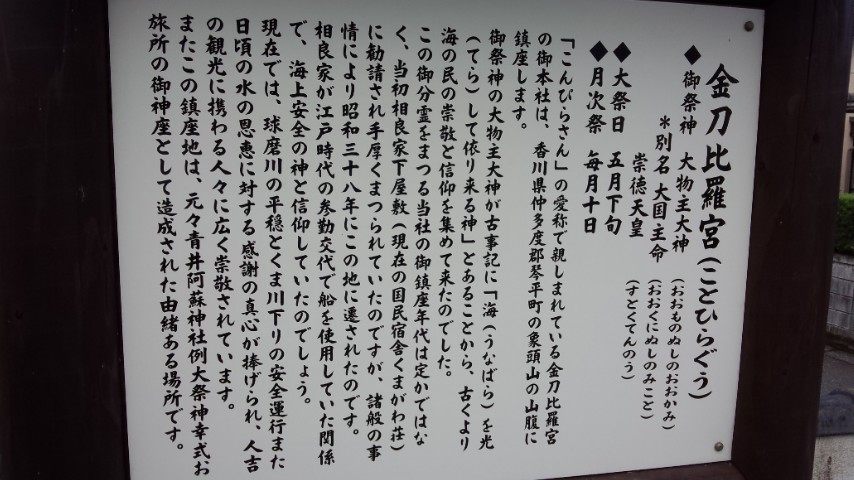 金刀比羅宮(ことひらぐう)
◆御祭神 大物主大神(おおものぬしのおおかみ)
*別名 大国主命(おおくにぬしのみこと)
崇徳天皇(すとくてんのう)
◆大祭日 五月下旬
◆月次祭 毎月十日
「こんぴらさん」の愛称で親しまれている金刀比羅宮
の御本社は、香川県仲多度郡琴平町の象頭山の山腹に
鎮座します。
御祭神の大物主大神が古事記に「海(うなばら)を光
(てら)して依り来る神」とあることから、古くより
海の民の崇敬と信仰を集めて来たのでした。
この御分霊をまつる当社の御鎮座年代は定かではな
く、当初相良家下屋敷(現在の国民宿舎くまがわ荘)
に勧請され手厚くまつられていたのですが、諸般の事
情により昭和三十八年にこの地に遷されたのです。
相良家が江戸時代の参勤交代で船を使用していた関係
で、海上安全の神と信仰していたのでしょう。
現在では、球磨川の平穏とくま川下りの安全運行また
日頃の水の恩恵に対する感謝の真心が捧げられ、人吉
の観光に携わる人々に広く崇敬されています。
またこの鎮座地は、元々青井阿蘇神社例大祭神幸式お
旅所の御神座として造成された由緒ある場所です。